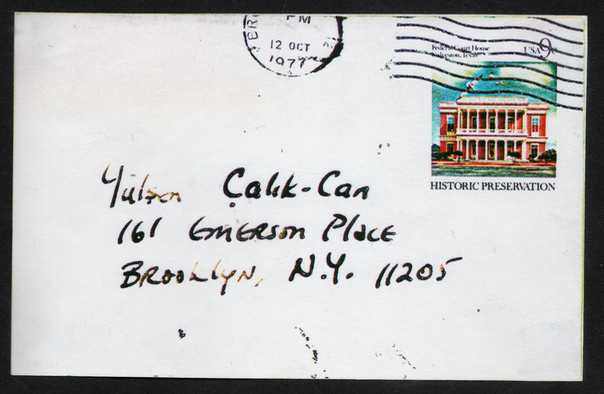 PM
12 OCT
1977
Federal Court House
Galveston, Texas
USA 9c
HISTORIC PRESERVATION
Gülsen Çalık-Can
161 EMERSON PLACE
BROOKLYN, N.Y. 11205